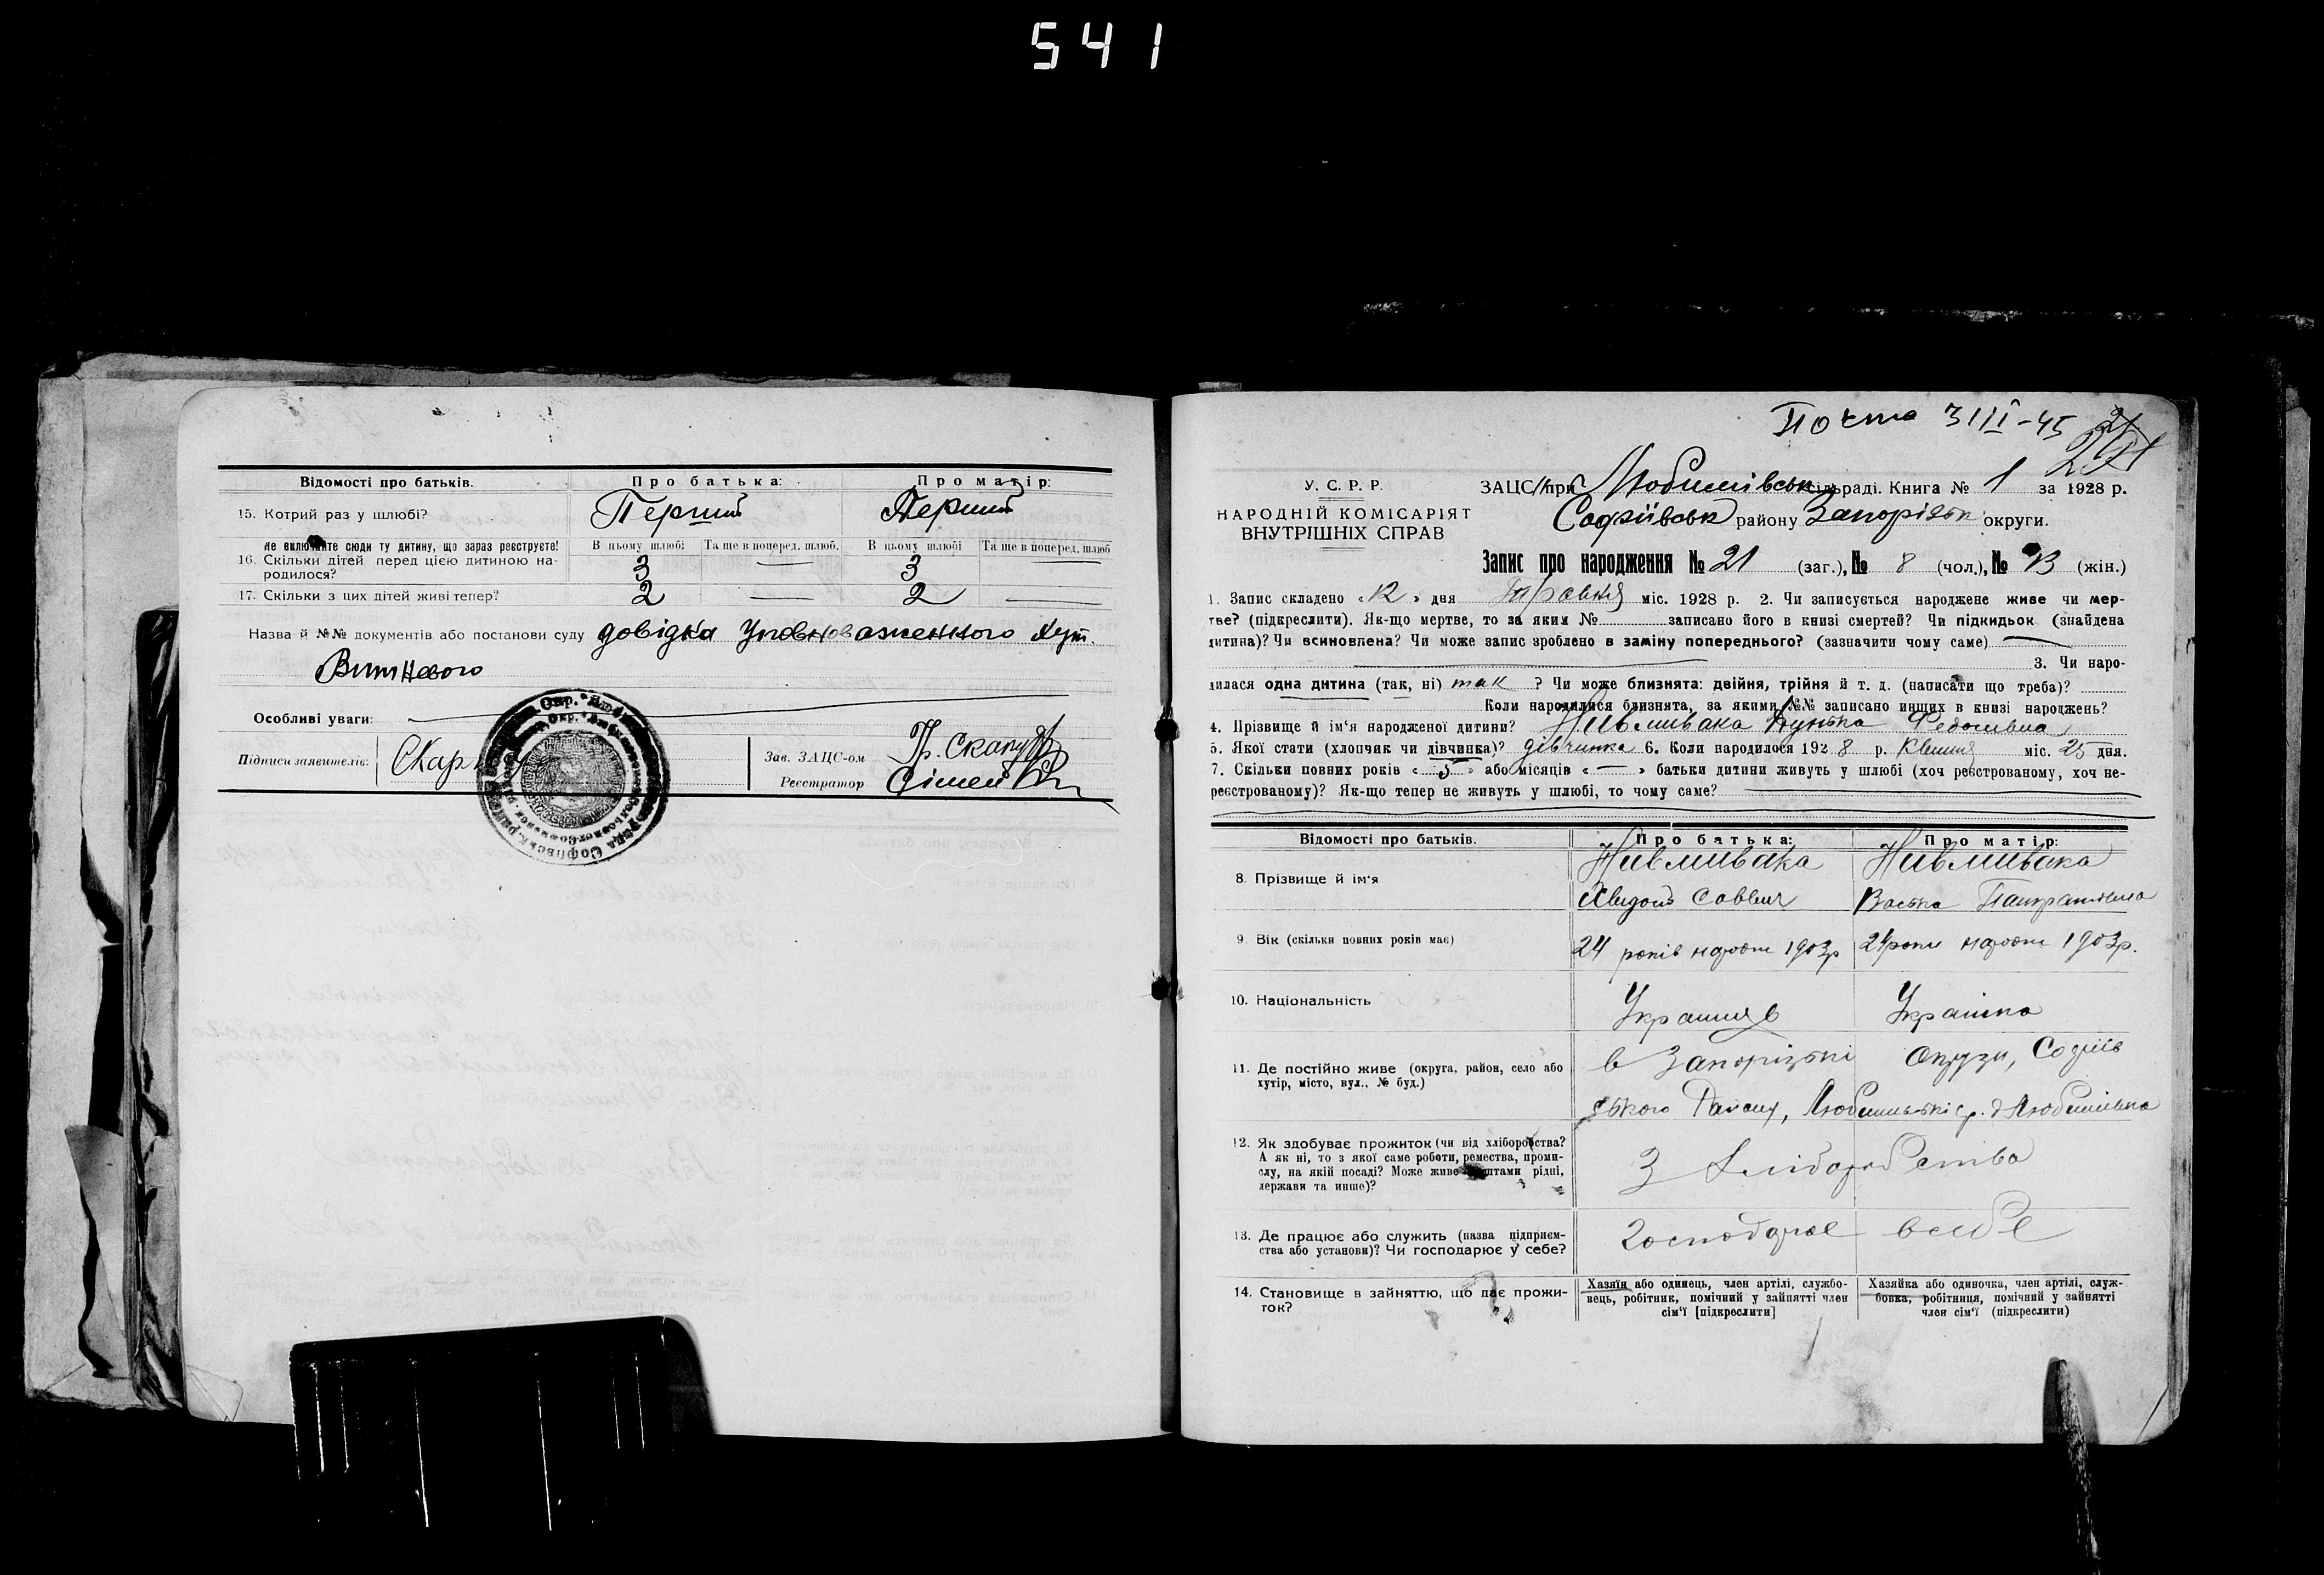 541
Відомості про батьків. Про батька: Про матір:
15. Котрий раз у шлюбі? Перший Перший
Не включайте сюди ту дитину, що зараз реєструєте! В цьому шлюбі Та ще в поперед. шлюб. В цьому шлюбі Та ще в поперед. шлюб
16. Скільки дітей перед цією дитиною на-
родилося? 3 — 3 —
17. Скільки з цих дітей живі тепер? 2 — 2 —
Назва й №№ документів або постанови суду довідка Уповноваженного Хут.
Вишневого
Особливі уваги:
Підписи заявителів: Зав. ЗАЦС-ом
Реєстратор
Почта 3III-45
У. С. Р. Р.
НАРОДНІЙ КОМІСАРІЯТ
ВНУТРІШНІХ СПРАВ
ЗАЦС при Любимівськ сільраді. Книга № 1 за 1928 р.
Софіївськ району Запорізьк округи.
Запис про народження № 21 (заг.), № 8 (чол.), № 13 (жін.)
1. Запис складено «12» дня Травня міс. 1928 р. 2. Чи записується народжене живе чи мер-
тве? (підкреслити). Як-що мертве, то за яким № записано його в книзі смертей? Чи підкидьок (знайдена
дитина)? Чи всиновлена? Чи може запис зроблено в заміну попереднього? (зазначити чому саме) —
3. Чи наро-
дилася одна дитина (так, ні) так ? Чи може близнята: двійня, трійня й т. д. (написати що треба)?
Коли народилися близнята, за якими №№ записано инших в книзі народжень?
4. Прізвище й ім'я народженої дитини? Нивмивака Федосівна
5. Якої стати (хлопчик чи дівчинка)? дівчинка 6. Коли народилося 1928 р. Квітня міс. 25 дня.
7. Скільки повних років «5» або місяців «—» батьки дитини живуть у шлюбі (хоч реєстрованому, хоч не-
реєстрованому)? Як-що тепер не живуть у шлюбі, то чому саме?
Відомості про батьків. Про батька: Про матір:
8. Прізвище й ім'я Нивмивака Нивмивака
Саввич Панкратівна
9. Вік (скільки повних років має) 24 років народж 1903р 24 роки народж 1903р.
10. Національність Українец Українка
11. Де постійно живе (округа, район, село або
хутір, місто, вул., № буд.) в Запорізькі Округи, Софіїв
ського Району, Любимівка
12. Як здобуває прожиток (чи від хліборобства?
А як ні, то з якої саме роботи, ремества, проми-
слу, на якій посаді? Може живе коштами рідні,
держави та инше)? З хліборобства
13. Де працює або служить (назва підприєм-
ства або установи)? Чи господарює у себе? Господарює в себе
14. Становище в зайняттю, що дає прожи-
ток?
Хазяїн або одинець, член артілі, службо-
вець, робітник, помічний у зайнятті член
сім'ї [підкреслити]
Хазяйка або одиночка, член артілі, служ-
бовка, робітниця, помічний у зайнятті
член сім'ї (підкреслити)